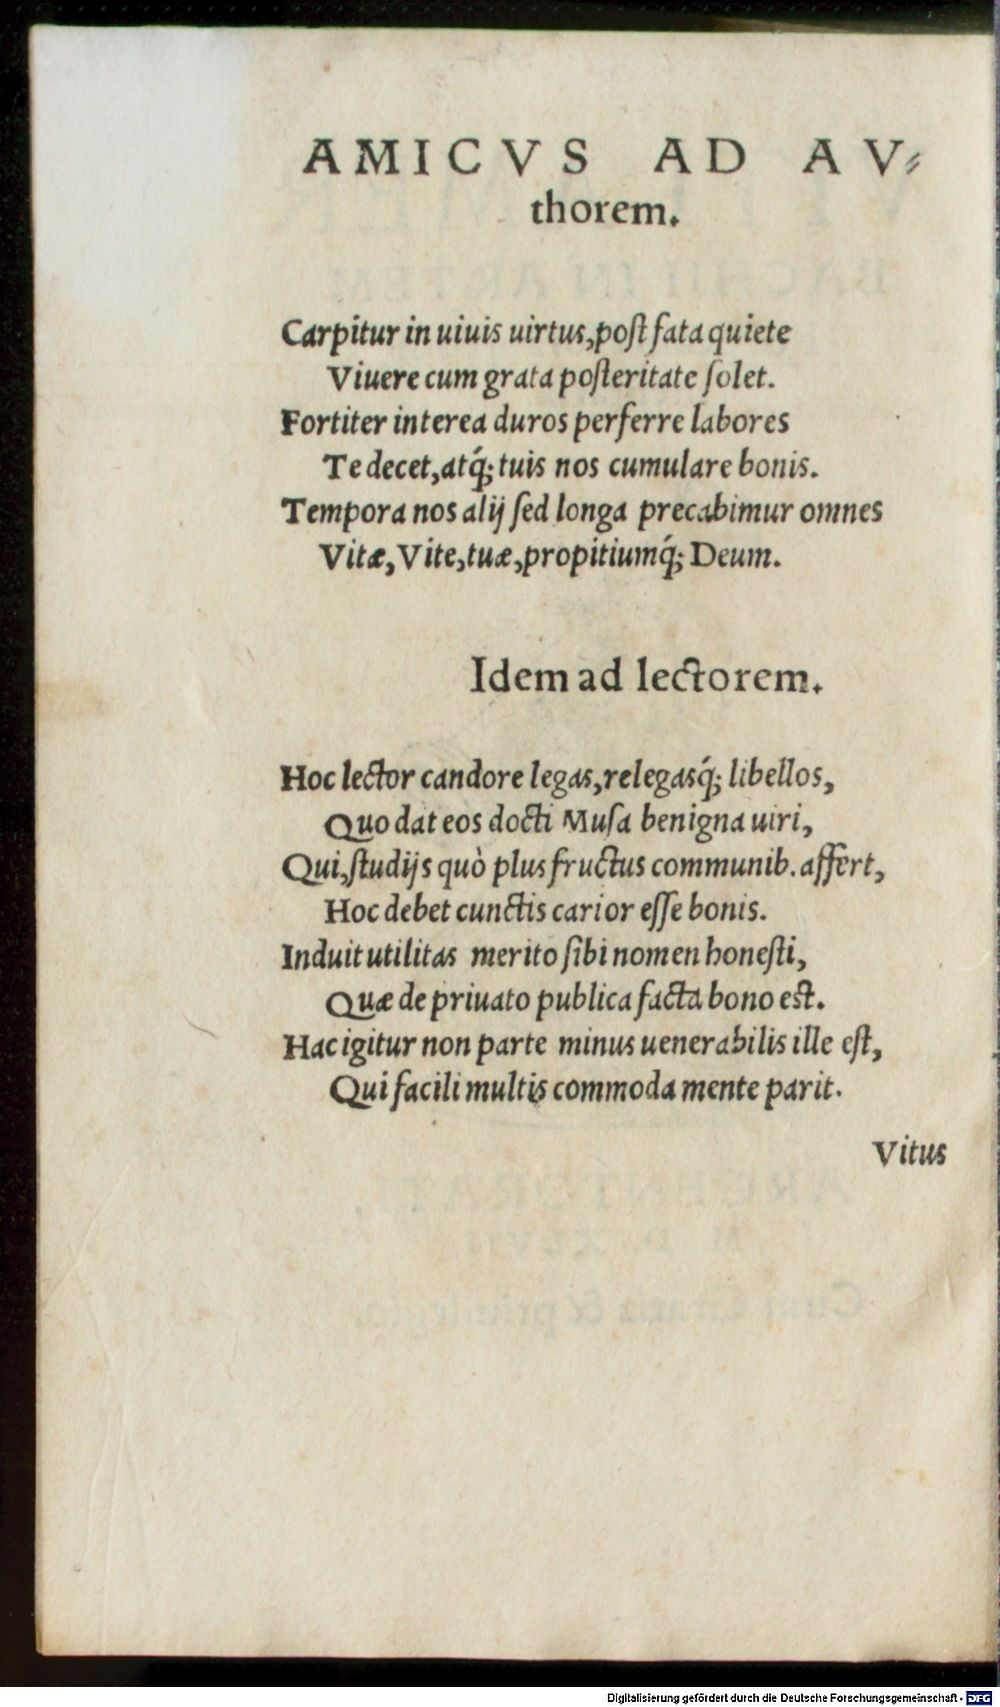 AMICVS AD AV⸗
thorem.
Carpitur in uiuis uirtus, post fata quiete
Viuere cum grata posteritate solet.
Fortiter interea duros perferre labores
Te decet, atq́; tuis nos cumulare bonis.
Tempora nos alij sed longa precabimur omnes
Vitæ, Vite, tuæ, propitiumq́; Deum.
Idem ad lectorem.
Hoc lector candore legas, relegasq́; libellos,
Quo dat eos docti Musa benigna uiri,
Qui, studijs quò plus fructus communib. affert,
Hoc debet cunctis carior esse bonis.
Induit utilitas merito sibi nomen honesti,
Quæ de priuato publica facta bono est.
Hac igitur non parte minus uenerabilis ille est,
Qui facili multis commoda mente parit.
Vitus
Digitalisierung gefördert durch die Deutsche Forschungsgemeinschaft - DFG